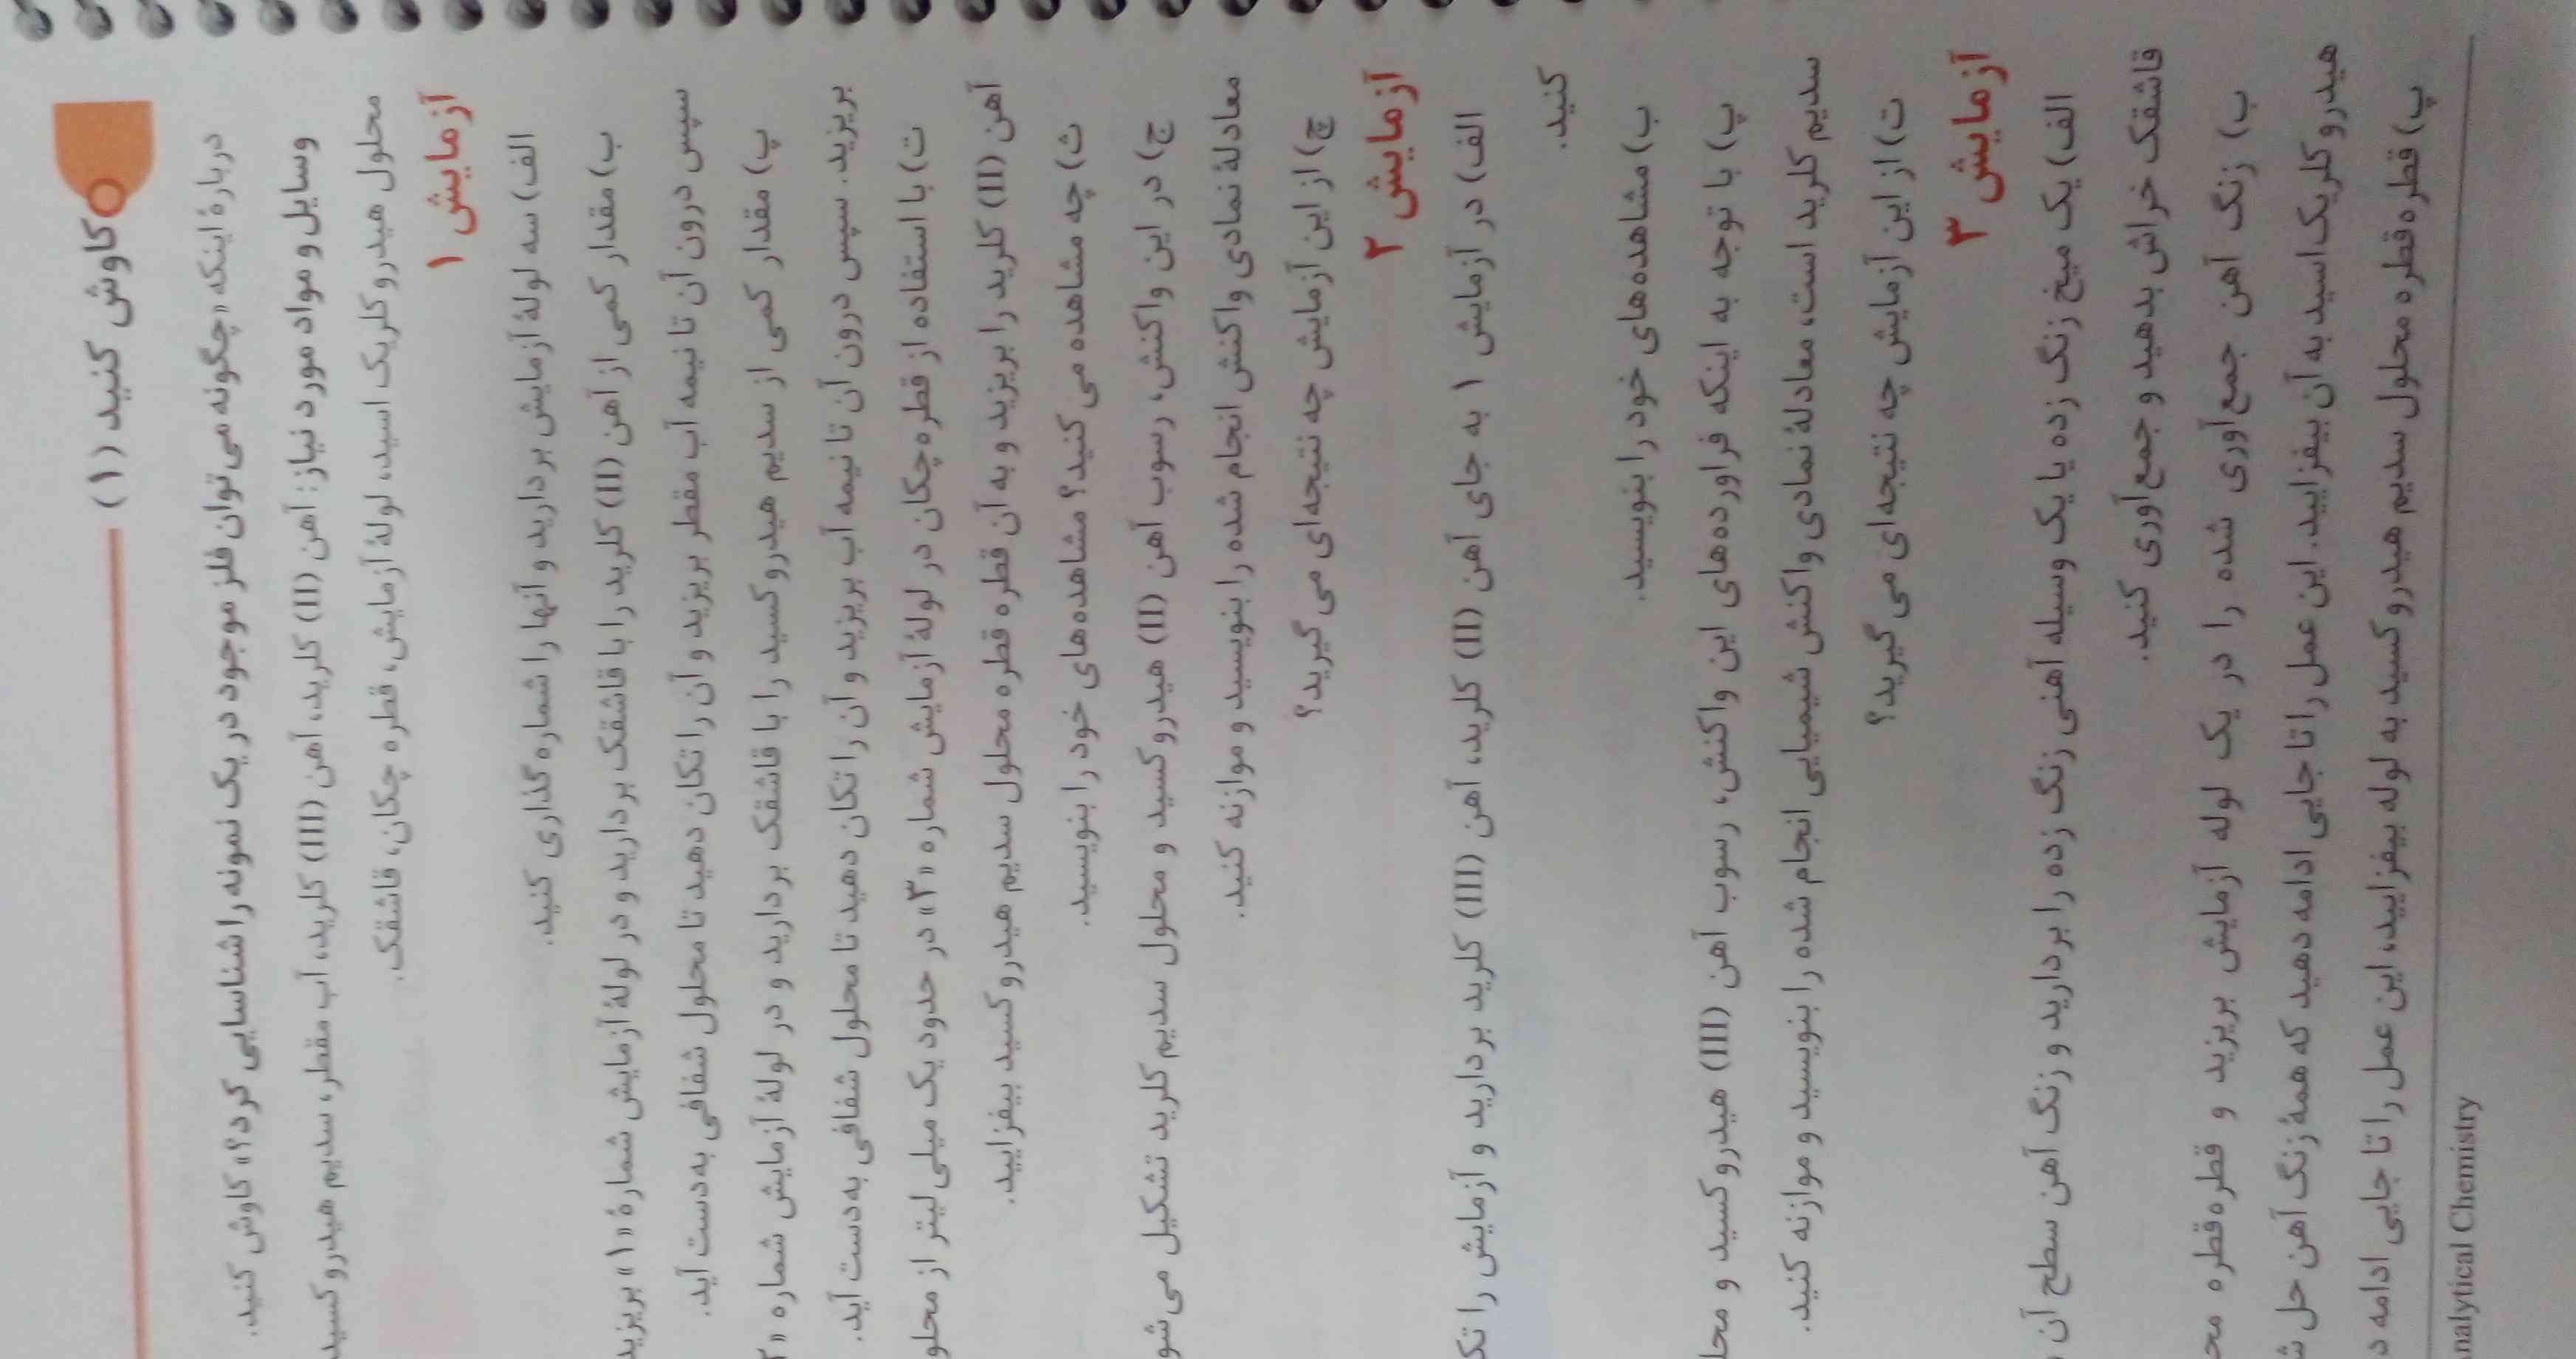 کاوش کنید (۱)
دربارهٔ اینکه «چگونه می‌توان فلز موجود در یک نمونه را شناسایی کرد؟» کاوش کنید.
وسایل و مواد مورد نیاز: آهن (II) کلرید، آهن (III) کلرید، آب مقطر، سدیم هیدروکسید
محلول هیدروکلریک اسید، لولهٔ آزمایش، قطره چکان، قاشقک.
آزمایش ۱
الف) سه لولهٔ آزمایش بردارید و آنها را شماره‌گذاری کنید.
ب) مقدار کمی از آهن (II) کلرید را با قاشقک بردارید و در لولهٔ آزمایش شمارهٔ «۱» بریزید
سپس درون آن تا نیمه آب مقطر بریزید و آن را تکان دهید تا محلول شفافی به‌دست آید.
پ) مقدار کمی از سدیم هیدروکسید را با قاشقک بردارید و در لولهٔ آزمایش شماره «۲
بریزید. سپس درون آن تا نیمه آب بریزید و آن را تکان دهید تا محلول شفافی به‌دست آید.
ت) با استفاده از قطره‌چکان در لولهٔ آزمایش شماره «۳» در حدود یک میلی‌لیتر از محلو
آهن (II) کلرید را بریزید و به آن قطره قطره محلول سدیم هیدروکسید بیفزایید.
ث) چه مشاهده می‌کنید؟ مشاهده‌های خود را بنویسید.
ج) در این واکنش، رسوب آهن (II) هیدروکسید و محلول سدیم کلرید تشکیل می‌شو
معادلهٔ نمادی واکنش انجام شده را بنویسید و موازنه کنید.
چ) از این آزمایش چه نتیجه‌ای می‌گیرید؟
آزمایش ۲
الف) در آزمایش ۱ به جای آهن (II) کلرید، آهن (III) کلرید بردارید و آزمایش را تک
کنید.
ب) مشاهده‌های خود را بنویسید.
پ) با توجه به اینکه فراورده‌های این واکنش، رسوب آهن (III) هیدروکسید و محل
سدیم کلرید است، معادلهٔ نمادی واکنش شیمیایی انجام شده را بنویسید و موازنه کنید.
ت) از این آزمایش چه نتیجه‌ای می‌گیرید؟
آزمایش ۳
الف) یک میخ زنگ زده یا یک وسیله آهنی زنگ زده را بردارید و زنگ آهن سطح آن
قاشقک خراش بدهید و جمع‌آوری کنید.
ب) زنگ آهن جمع‌آوری شده را در یک لوله آزمایش بریزید و قطره‌قطره مح
هیدروکلریک اسید به آن بیفزایید. این عمل را تا جایی ادامه دهید که همهٔ زنگ آهن حل ش
پ) قطره‌قطره محلول سدیم هیدروکسید به لوله بیفزایید، این عمل را تا جایی ادامه د
nalytical Chemistry